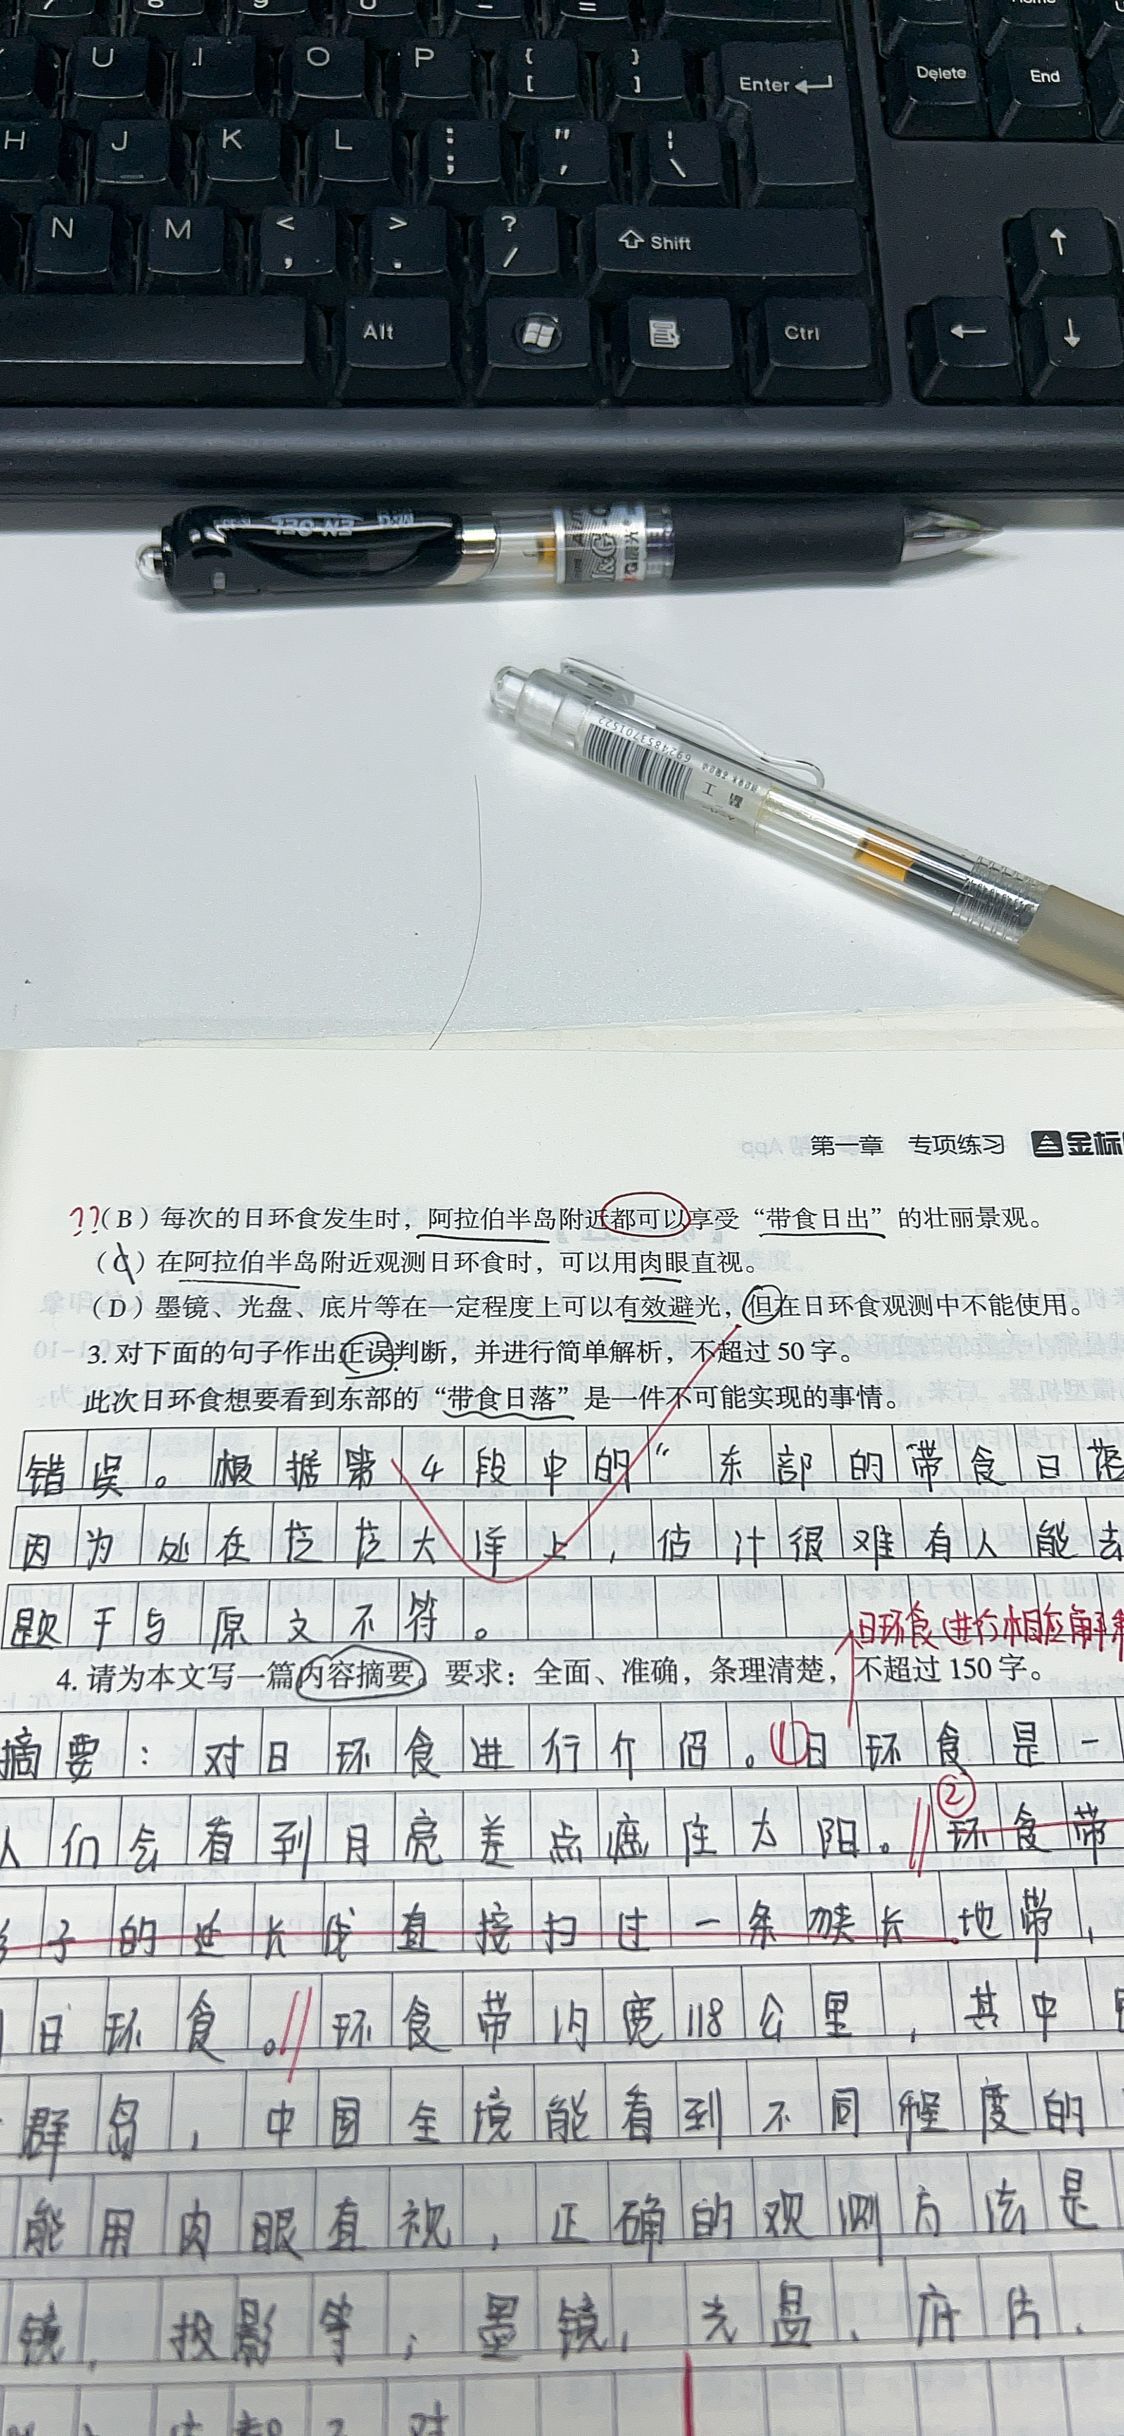 U I O P { [ } ] Enter Delete End
H J K L : ; " ' | \
N M < , > . ? / Shift
Alt Ctrl
M&G
6924853701522
第一章 专项练习 金标
??(B)每次的日环食发生时，阿拉伯半岛附近都可以享受“带食日出”的壮丽景观。
(C)在阿拉伯半岛附近观测日环食时，可以用肉眼直视。
(D)墨镜、光盘、底片等在一定程度上可以有效避光，但在日环食观测中不能使用。
3. 对下面的句子作出正误判断，并进行简单解析，不超过50字。
此次日环食想要看到东部的“带食日落”是一件不可能实现的事情。
错误。根据第4段中的“东部的带食日落
因为处在茫茫大洋上，估计很难有人能去
题干与原文不符。
日环食进行相应解释
4. 请为本文写一篇内容摘要。要求：全面、准确，条理清楚，不超过150字。
摘要：对日环食进行介绍。①日环食是一
人们会看到月亮差点遮住太阳。②环食带
子的延长线直接扫过一条狭长地带，
日环食。环食带内宽118公里，其中
群岛，中国全境能看到不同程度的
能用肉眼直视，正确的观测方法是
镜、投影等；墨镜、光盘、底片、